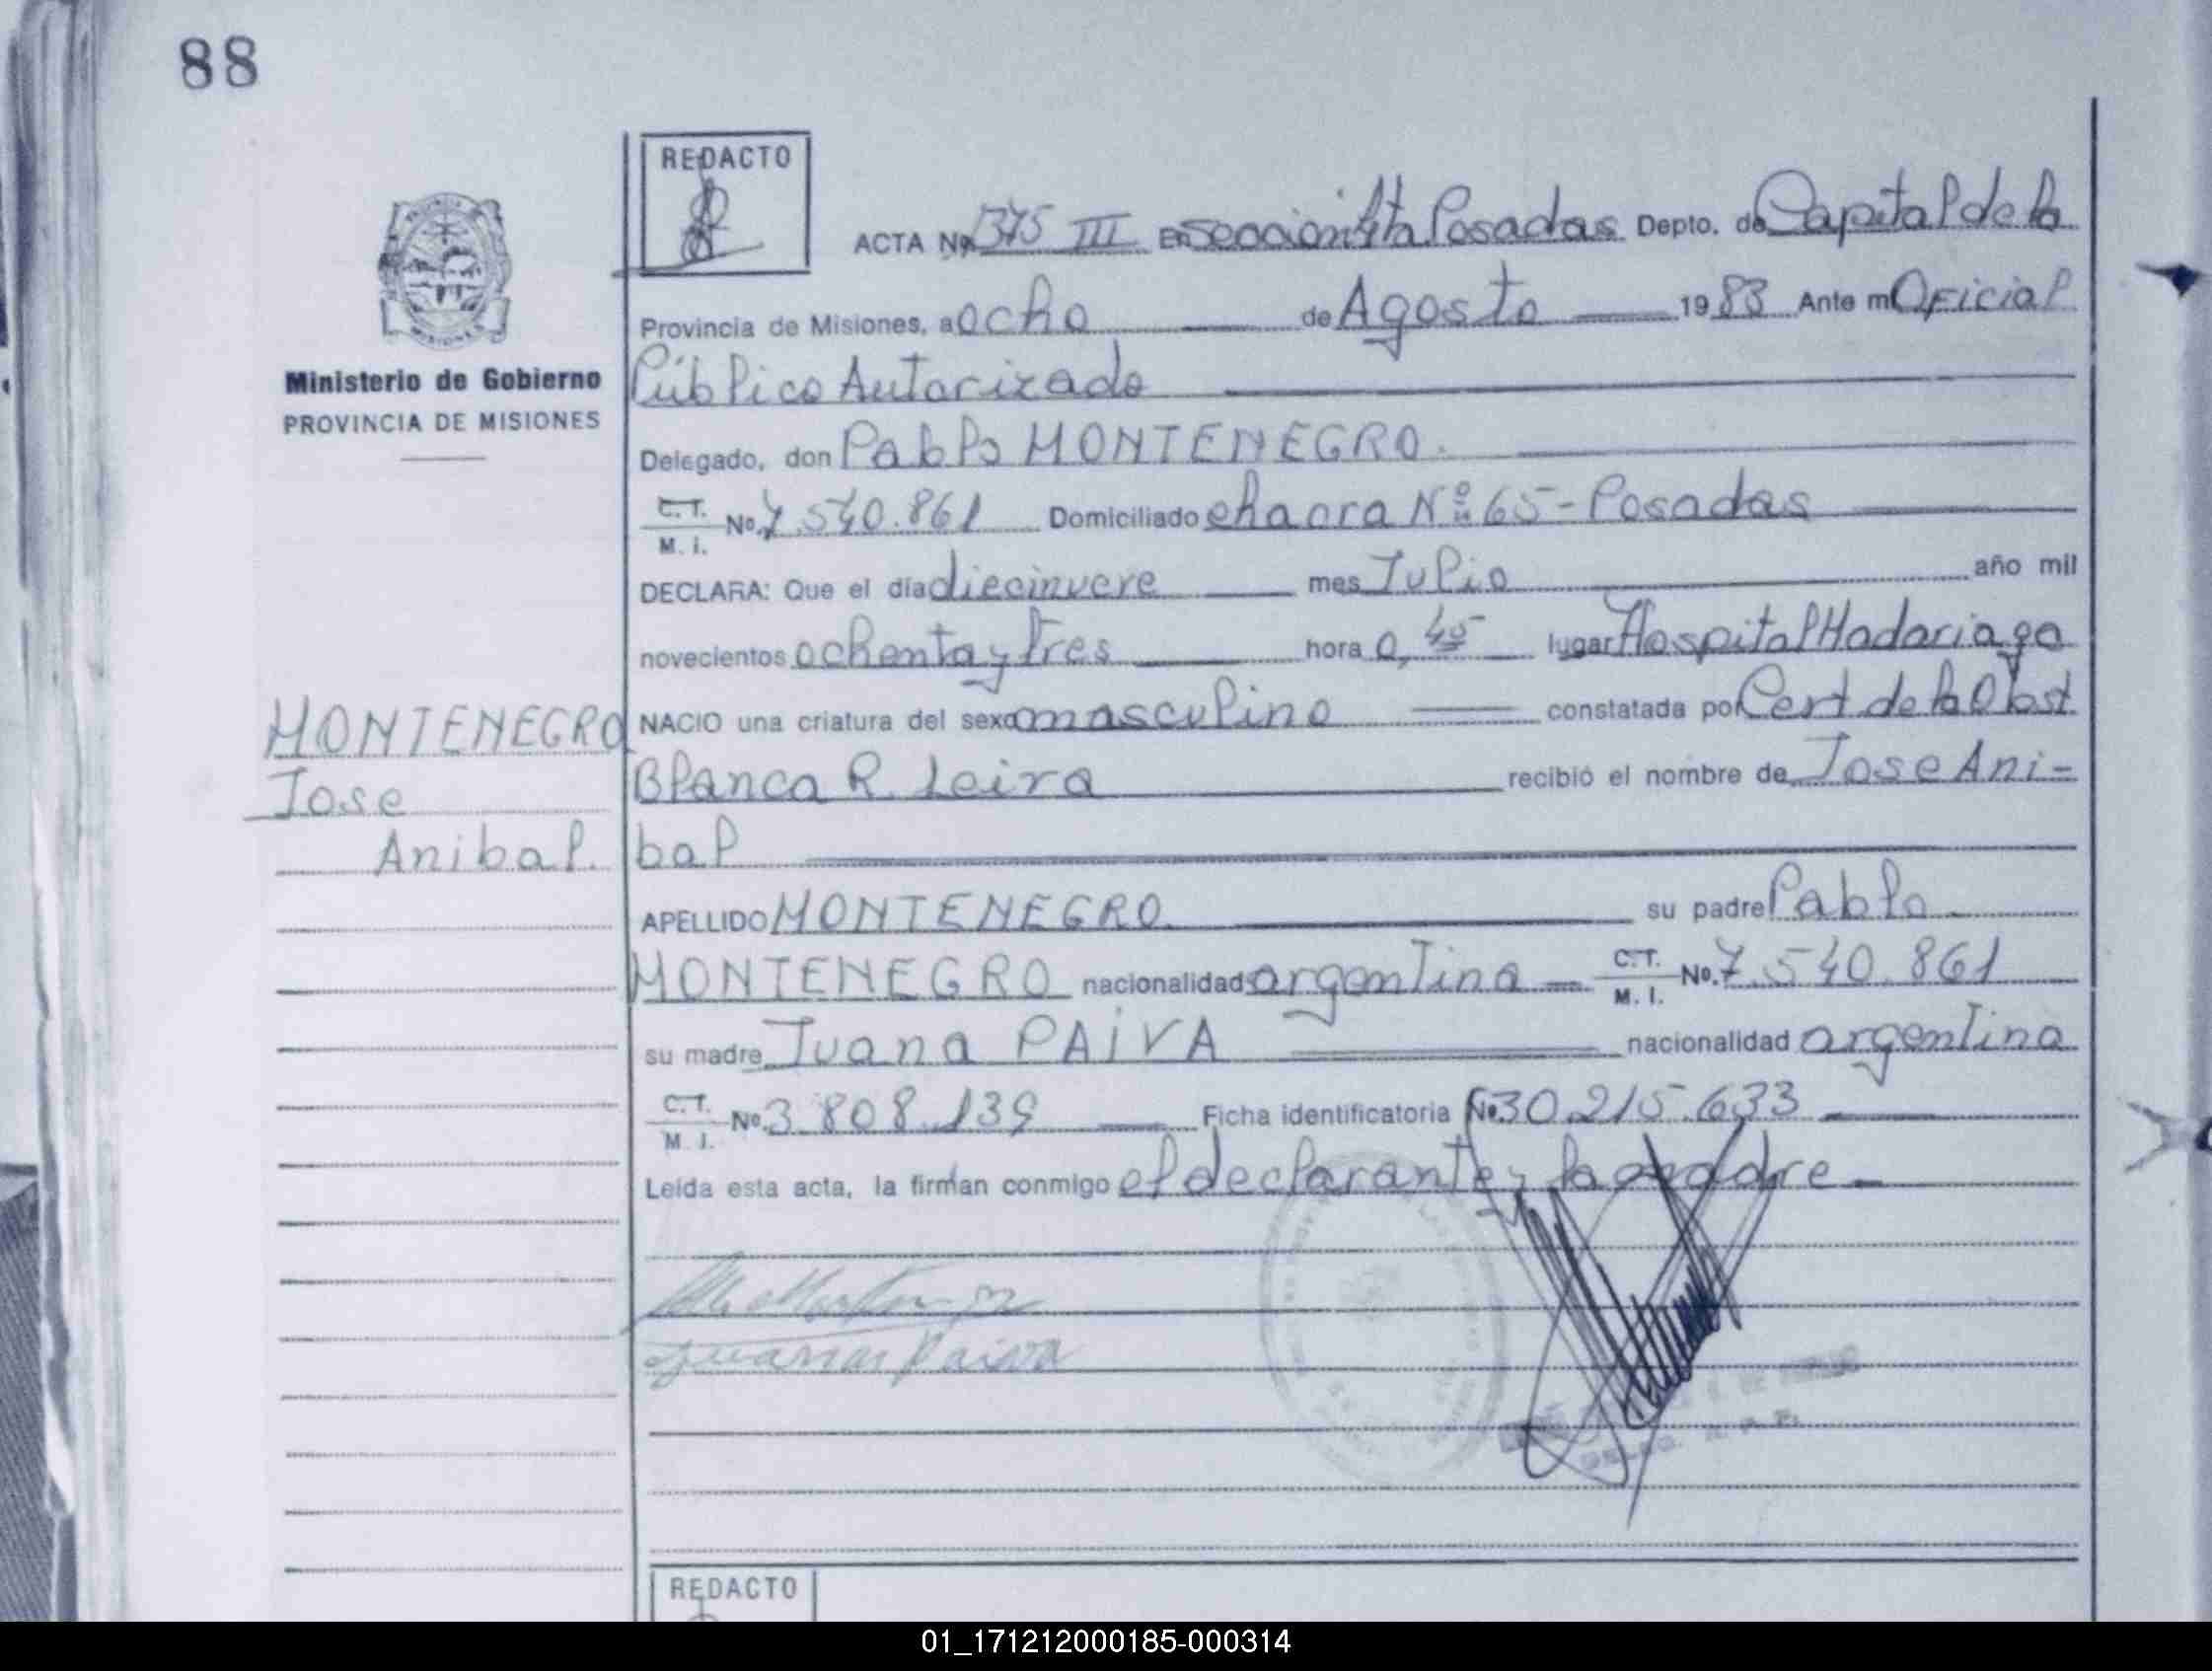 88
REDACTO
ACTA Nº 1375 III En Sección 4ta Posadas Depto. de Capital de la
Provincia de Misiones, a ocho de Agosto 1983 Ante mi Oficial
Ministerio de Gobierno
Público Autorizado
PROVINCIA DE MISIONES
Delegado, don Pablo MONTENEGRO.
C.T.
M. I. Nº. 7.540.861 Domiciliado chacra Nº 65 - Posadas
DECLARA: Que el día diecinueve mes Julio año mil
novecientos ochenta y tres hora 0,45 lugar Hospital Madariaga
MONTENEGRO
NACIO una criatura del sexo masculino constatada por Cert de la Obst
Jose
Blanca R. Leira recibió el nombre de Jose Ani-
Anibal.
bal
APELLIDO MONTENEGRO su padre Pablo
MONTENEGRO nacionalidad argentina C.T.
M. I. Nº. 7.540.861
su madre Juana PAIVA nacionalidad argentina
C.T.
M. I. Nº. 3.808.139 Ficha identificatoria Nº 30.215.633
Leída esta acta, la firman conmigo el declarante y la madre
Juana Paiva
REDACTO
01_171212000185-000314